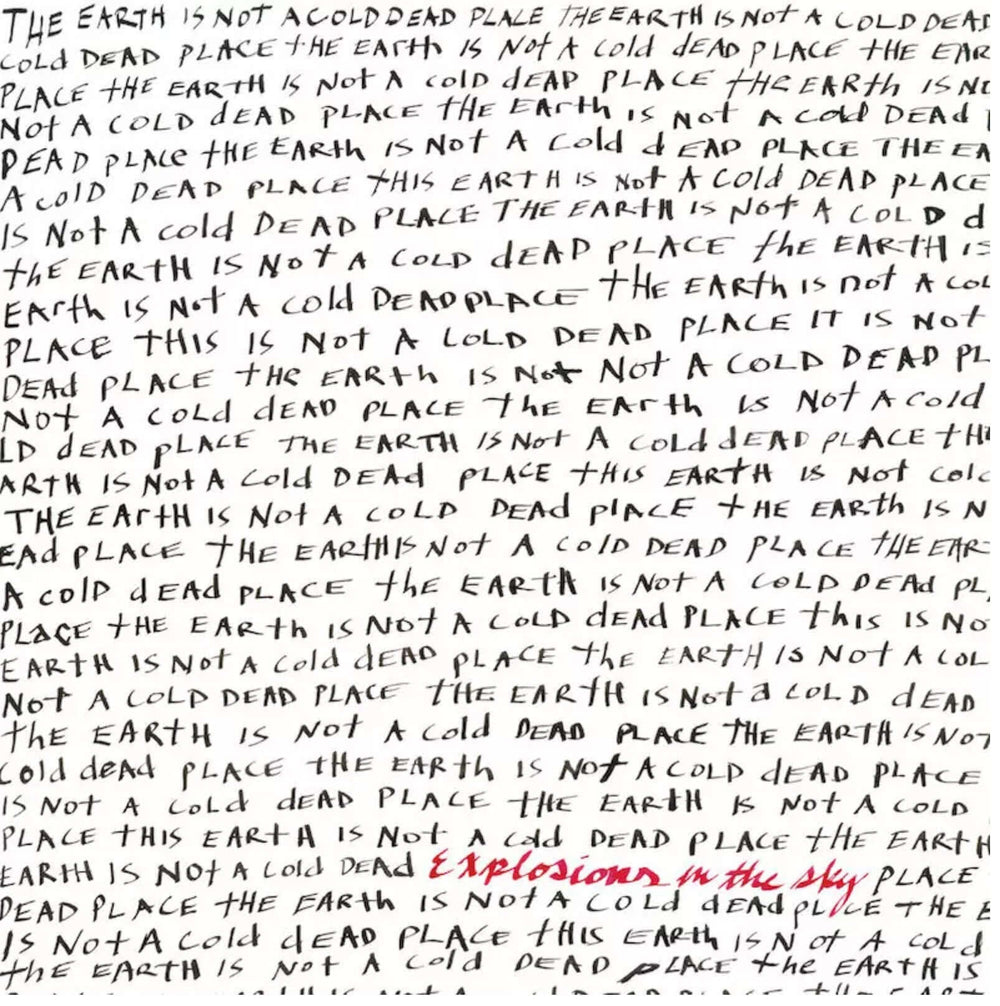 THE EARTH IS NOT A COLD DEAD PLACE THE EARTH IS NOT A COLD DEAD
COLd DEAD PLACE tHE EArth IS Not A cold dEAD PLACE tHE EAR
PLACE tHE EARTH IS Not A cold dEAD PLACE tHE EARth IS NO
Not A COLD dEAD PLACE tHE EArth is Not A cold DEAd
DEAD PLACe tHE EARth IS Not A Cold dEAD PLACE THE EA
A colD DEAD PLACE tHIS EARTH IS Not A Cold DEAD PLACE
IS Not A cold DEAD PLACE THE EARtH IS Not A COLD d
thE EARtH IS Not A COLD dEAD PLACE thE EARTH IS
EArth IS Not A cold DEAD PLACE tHE EARth is not A COL
PLACE tHIS IS Not A COLD DEAD PLACE IT IS Not
DEAd PLACE tHe EARth IS Not Not A COLD DEAD PL
Not A COLd dEAD PLACE thE EArth Is Not A Cold
LD dEAD pLACE THE EARTH IS Not A Cold dEAD PLACE tH
ARTH IS Not A Cold DEAd PLACE tHIS EARtH IS Not col
THE EArtH IS Not A coLD DEAd plACE tHE EARth IS N
EAd pLACE tHE EARtH IS Not A ColD DEAD PLACE tHE EAR
A colD dEAd pLACE thE EARtH IS Not A COLD DEAd pL
PLACE tHE EARth IS Not A COLD dEAd PLACE thIs IS No
EARtH IS Not A Cold dEAD pLACE thE EARTH IS Not A COL
Not A COLD DEAD PLACE tHE EARtH IS Not a COLD dEAD
thE EARtH IS Not A Cold DEAD PLACE THE EARtH IS Not
Cold deAd PLACE tHE EARth IS Not A COLD dEAD PLACE
IS Not A Cold dEAD PLACE tHE EARtH IS Not A COLD
PLACE tHIS EARtH IS Not A cold DEAD PLACE tHE EARtH
EARtH IS Not A Cold DEAD Explosions in the sky PLACE
DEAD PLACE tHE EARth IS Not A COLd dEAd pLACE tHE E
IS Not A Cold dEAD PLACE tHIS EARth IS Not A COLd
thE EARTH IS Not A Cold DEAD pLACE the EARtH IS